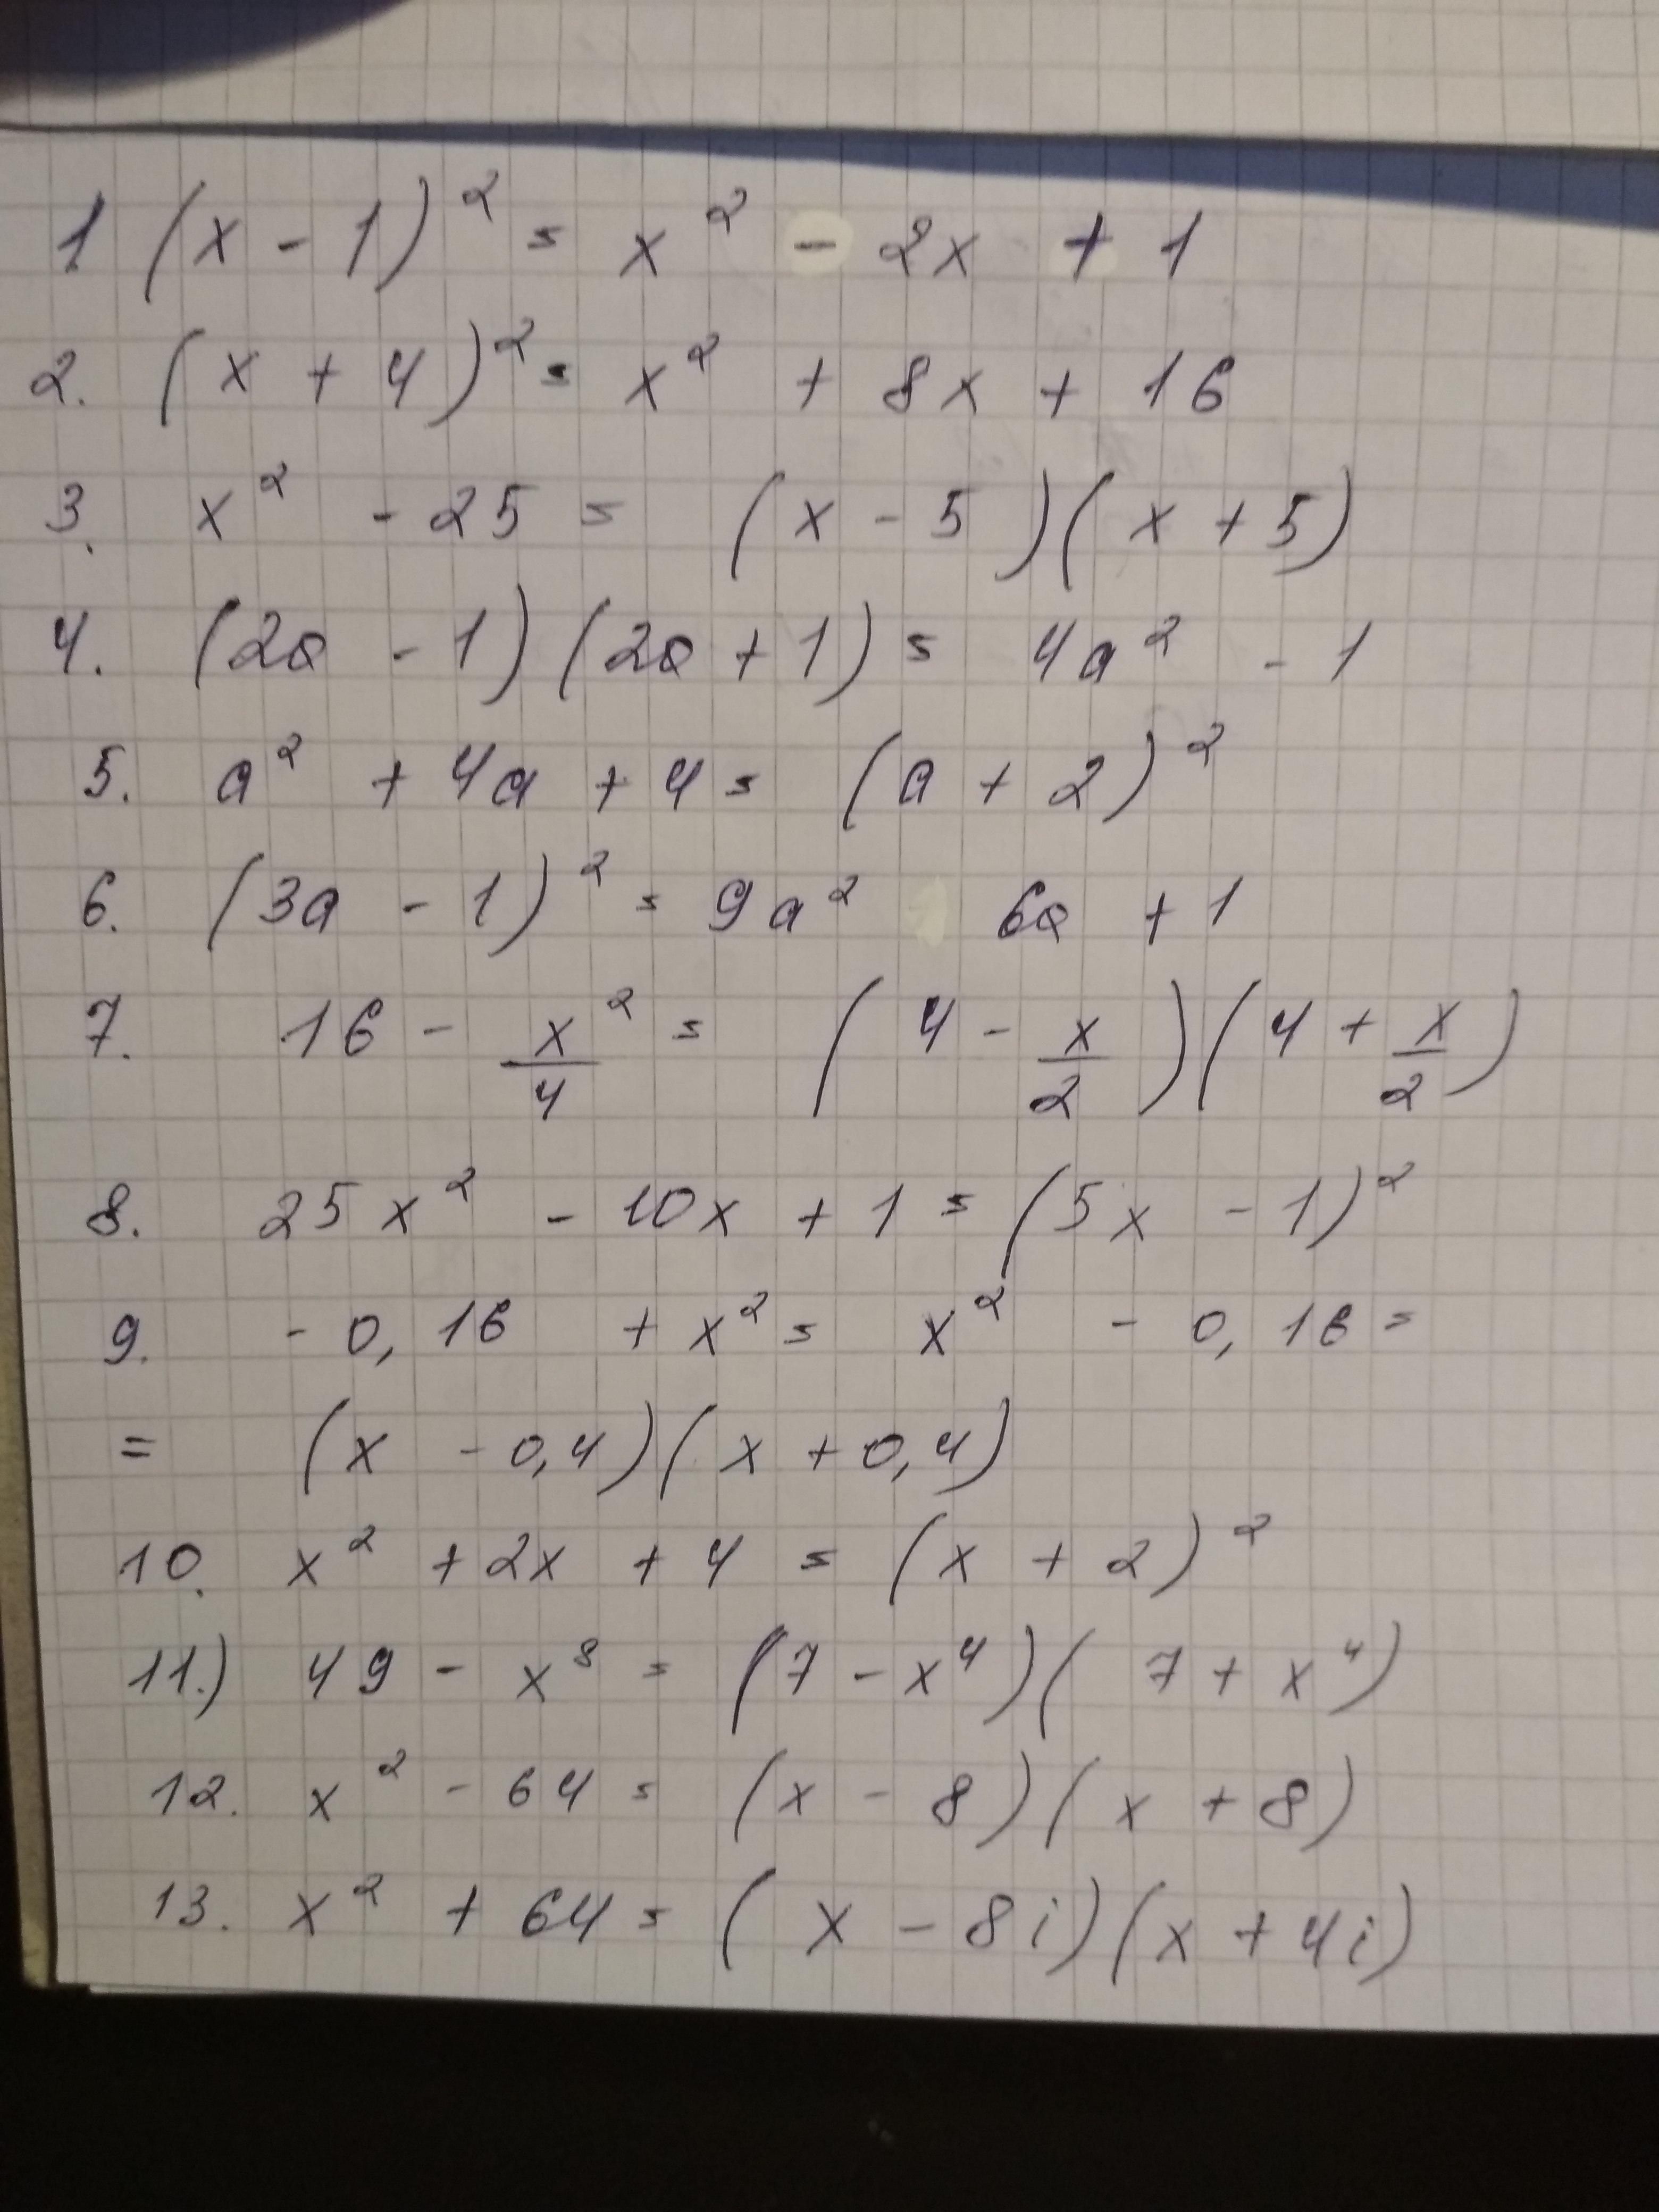 1 (x - 1)² = x² - 2x + 1
2. (x + 4)² = x² + 8x + 16
3. x² - 25 = (x - 5)(x + 5)
4. (2a - 1)(2a + 1) = 4a² - 1
5. a² + 4a + 4 = (a + 2)²
6. (3a - 1)² = 9a² 6a + 1
7. 16 - x²/4 = (4 - x/2)(4 + x/2)
8. 25x² - 10x + 1 = (5x - 1)²
9. - 0,16 + x² = x² - 0,16 =
= (x - 0,4)(x + 0,4)
10. x² + 2x + 4 = (x + 2)²
11.) 49 - x⁸ = (7 - x⁴)(7 + x⁴)
12. x² - 64 = (x - 8)(x + 8)
13. x² + 64 = (x - 8i)(x + 4i)